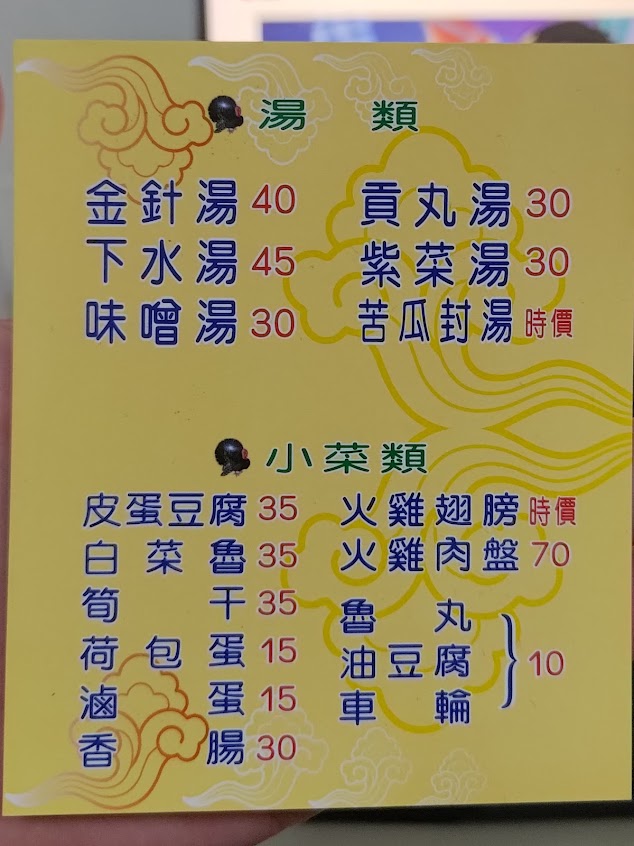 湯 類
金針湯 40 貢丸湯 30
下水湯 45 紫菜湯 30
味噌湯 30 苦瓜封湯 時價
小菜類
皮蛋豆腐 35 火雞翅膀 時價
白菜魯 35 火雞肉盤 70
筍干 35 魯丸
荷包蛋 15 油豆腐 10
滷蛋 15 車輪
香腸 30